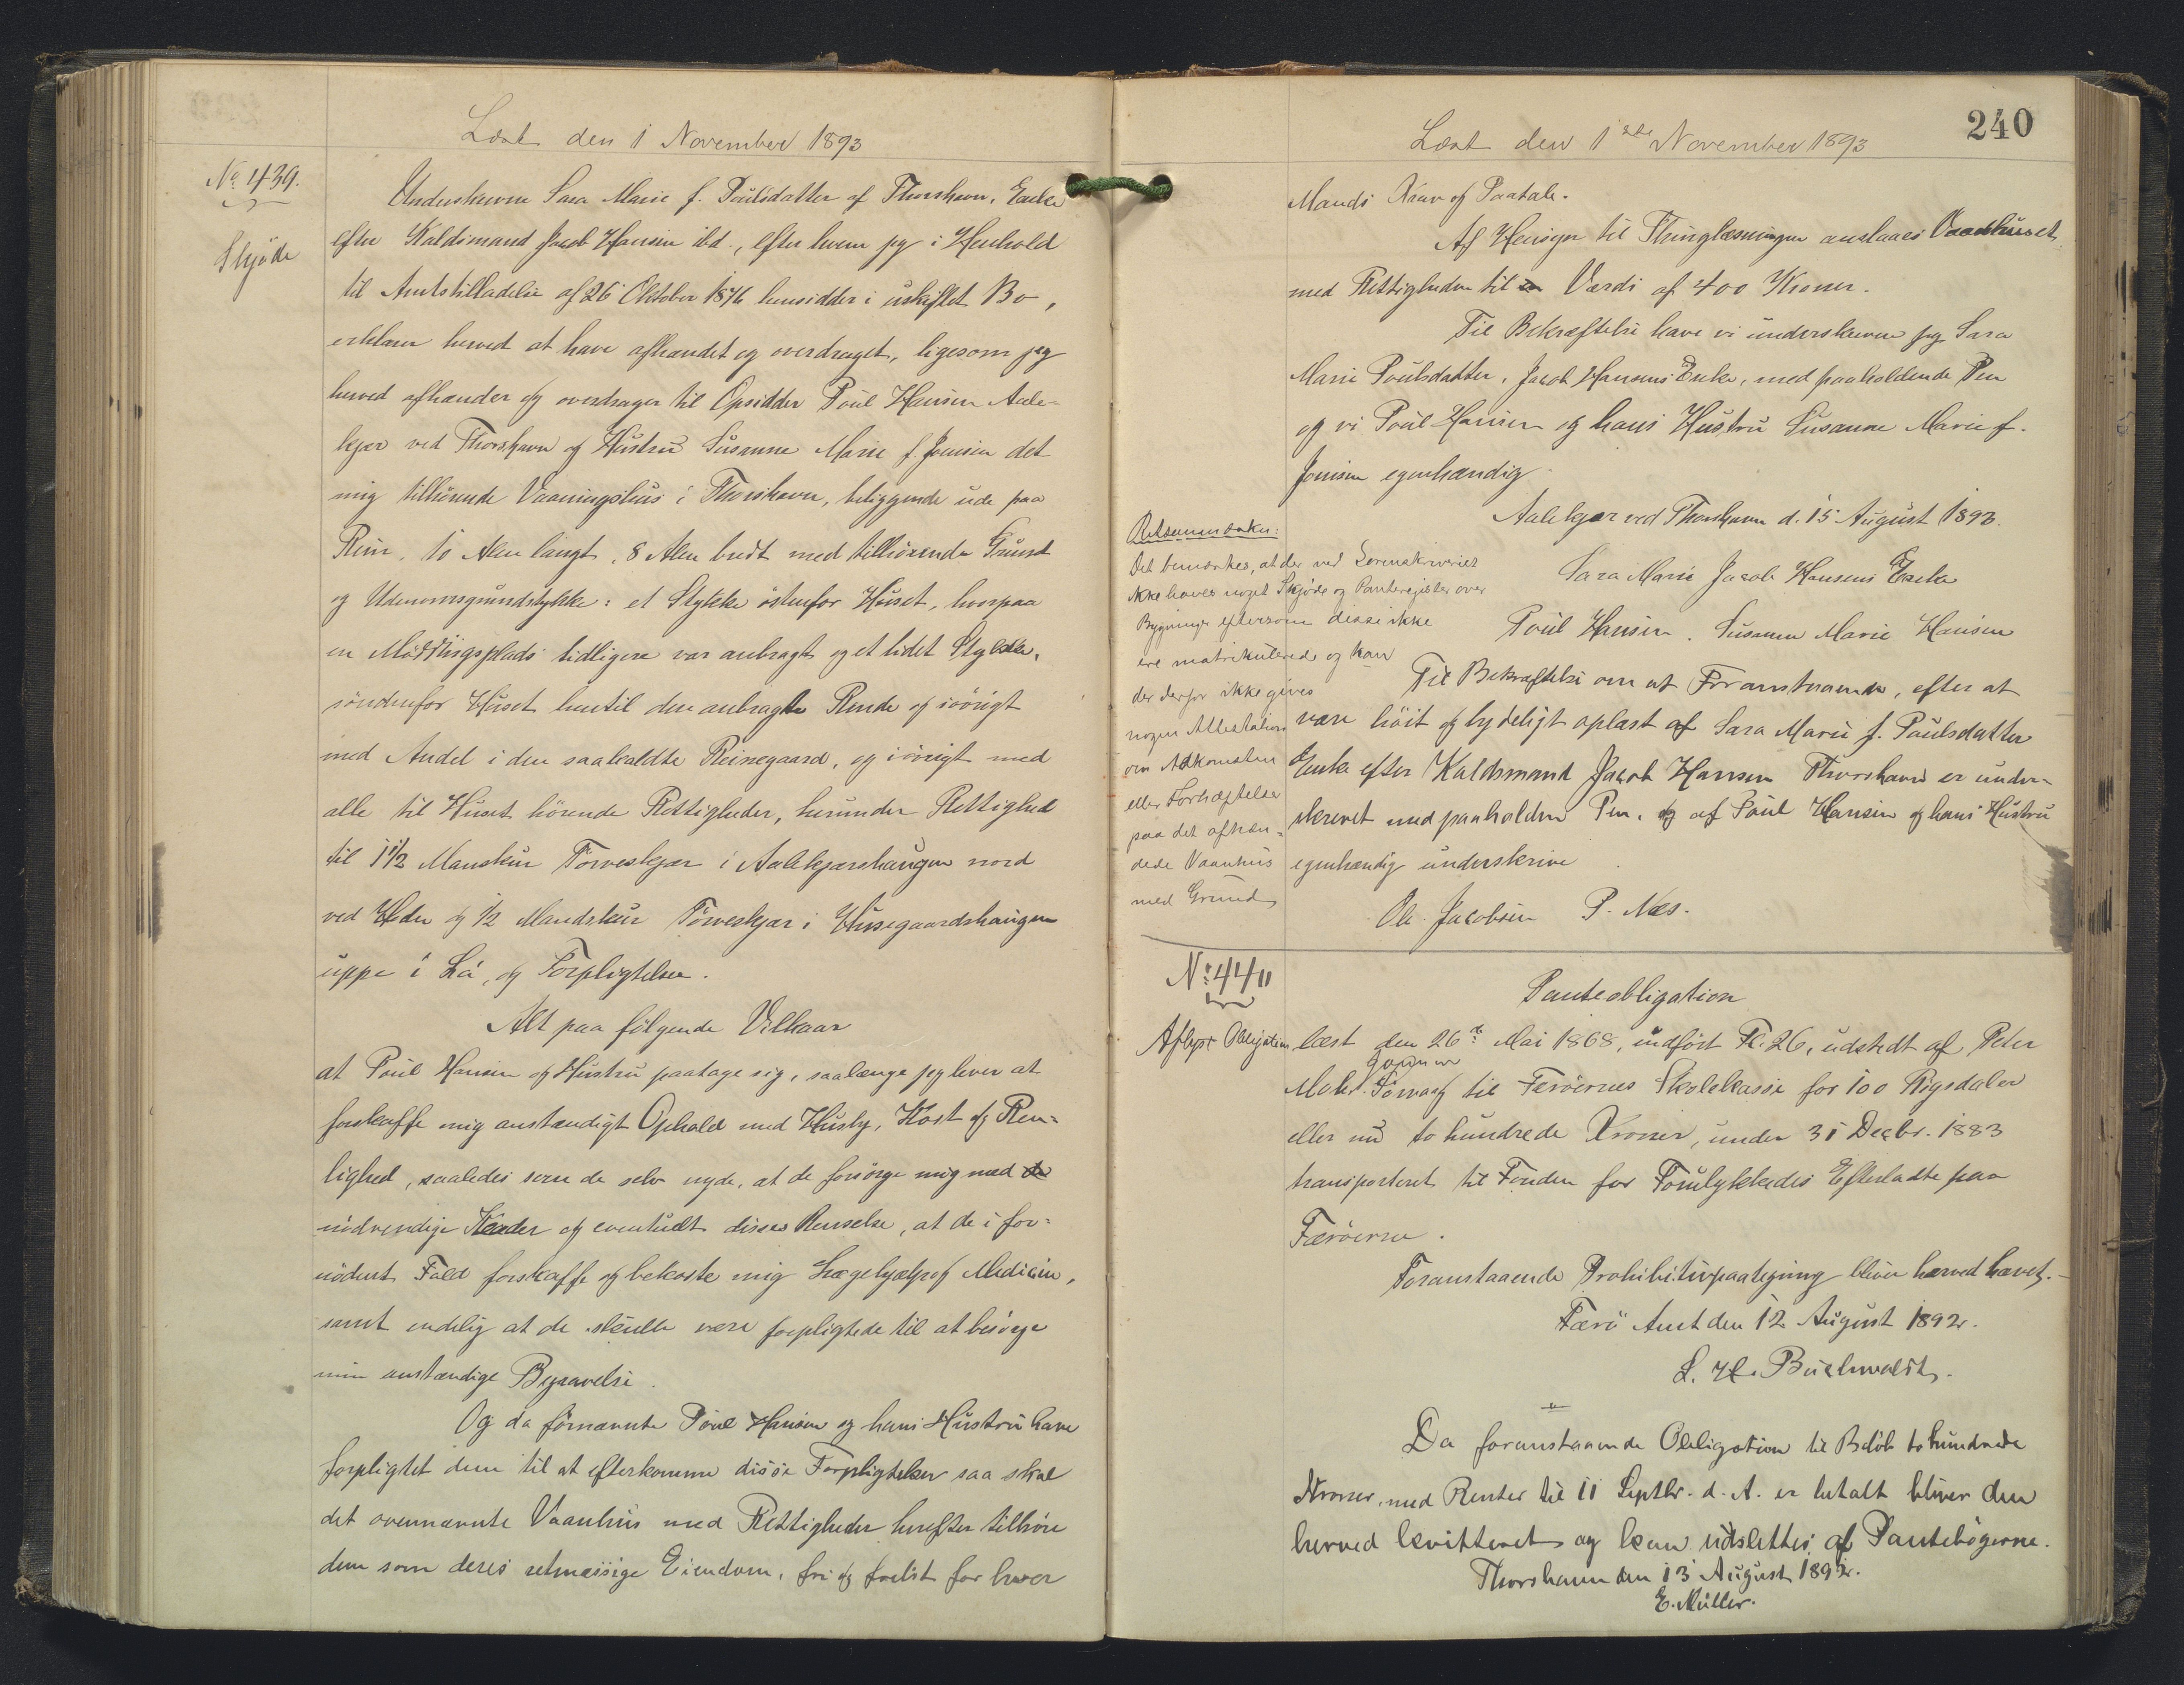 Læst den 1 November 1893
No. 439.
Skjøde
Underskrevne Sara Marie f. Poulsdatter af Thorshavn, Enke
efter Kaldsmand Jacob Hansen ibd., efter hvem jeg i Henhold
til Amtstilladelse af 26 Oktober 1876 hensidder i uskiftet Bo,
erklærer herved at have afhændet og overdraget, ligesom jeg
herved afhænder og overdrager til Opsidder Poul Hansen Aale-
kjær ved Thorshavn og Hustru Susanne Marie f. Joensen det
mig tilhörende Vaaningshus i Thorshavn, beliggende ude paa
Rein, 10 Alen langt, 8 Alen bredt med tilhörende Grund
og Udenomsgrundstykke: et Stykke östenfor Huset, hvorpaa
en Möddingsplads tidligere var anbragt og et lidet Stykke,
söndenfor Huset hentil den anbragte Rende og iövrigt
med Andel i den saakaldte Reinegaard, og iövrigt med
alle til Huset hörende Rettigheder, herunder Rettighed
til 1 1/2 Manskur Törveskjær i Aalekjærshaugen nord
ved Heden og 1/2 Mandskur Törveskjær i Husegaardshaugen
uppe i Lá, og Forpligtelser.
Alt paa fölgende Vilkaar
at Poul Hansen og Hustru paatage sig, saalænge jeg lever at
forskaffe mig anstændigt Ophold med Husly, Kost og Ren-
lighed, saaledes som de selv nyde, at de forsörge mig med de
nödvendige Klæder og eventuelt disses Renselse, at de i for-
nödent Fald forskaffe og bekoste mig Lægehjælp og Medicin,
samt endelig at de skulle være forpligtede til at besörge
min anstændige Begravelse.
Og da förnævnte Poul Hansen og hans Hustru have
forpligtet dem til at efterkomme disse Forpligtelser saa skal
det ovennævnte Vaanhus med Rettigheder herefter tilhöre
dem som deres retmæssige Eiendom, fri og frelst for hver
240
Læst den 1ste November 1893
Mands Krav og Paatale.
Af Hensyn til Thinglæsningen anslaaes Vaanhuset
med Rettigheder til en Værdi af 400 Kroner.
Til Bekræftelse have vi underskrevne jeg Sara
Marie Poulsdatter, Jacob Hansens Enke, med paaholdende Pen
og vi Poul Hansen og hans Hustru Susanne Marie f.
Joensen egenhændig.
Aalekjær ved Thorshavn d. 15 August 1893.
Sara Marie Jacob Hansens Enke
Poul Hansen. Susanne Marie Hansen
Til Bekræftelse om at Foranstaaende, efter at
være höit og tydeligt oplæst af Sara Marie f. Poulsdatter
Enke efter Kaldsmand Jacob Hansen Thorshavn er under-
skrevet med paaholden Pen, og af Poul Hansen og hans Hustru
egenhændig underskrive
Ole Jacobsen P. Næs.
Retsanmærkn:
Det bemærkes, at der ved Sorenskriveriet
ikke haves noget Skjöde og Panteregister over
Bygninger eftersom disse ikke
ere matrikulerede og kan
der derfor ikke gives
nogen Attestation
om Adkomsten
eller Forhæftelser
paa det afhæn-
dede Vaanhus
med Grund
No. 440
Aflyst Obligation
Panteobligation
læst den 26de Mai 1868, indfört Fol. 26, udstedt af Peter
Mohr til Færöernes Skolekasse for 100 Rigsdaler
eller nu to hundrede Kroner, under 31 Decbr. 1883
transporteret til Fonden for Forulykkedes Efterladte paa
Færöerne.
Foranstaaende Prohibitivpaategning bliver herved hævet.
Færö Amt den 12 August 1892.
L. H. Buchwaldt.
Da foranstaaende Obligation til Belöb to hundrede
Kroner, med Renter til 11 Septbr. d. A. er betalt bliver den
herved kvitteret og kan udslettes af Pantebögerne.
Thorshavn den 13 August 1892.
E. Müller.